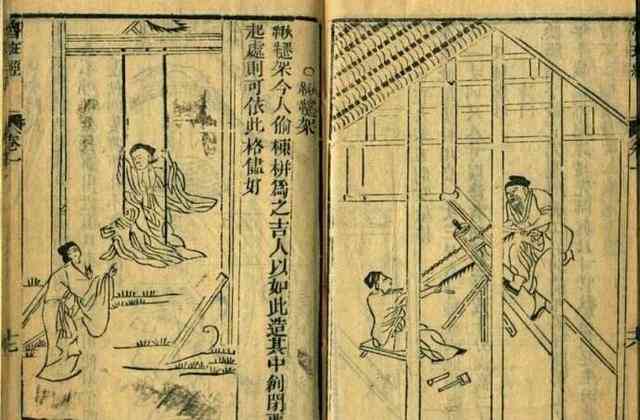 ○鞦韆架
鞦韆架今人偷棟栟爲之吉人以如此造其中創閑
起處則可依此格儘好
魯班經
卷一
七